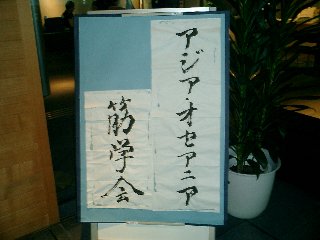 アジアオセアニア
筋学会